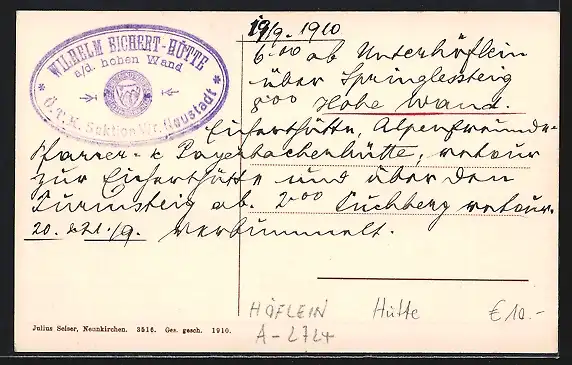 WILHELM EICHERT-HÜTTE
a/d. hohen Wand
Ö.T.K. Sektion Wr. Neustadt
19/9. 1910
6⁰⁰ ab Unterhöflein
über Springlessteig
8⁰⁰ Hohe Wand.
Eicherthütte, Alpenfreunde-
Pfarrer- & Payerbacherhütte, retour
zur Eicherthütte und über den
Turmsteig ab. 2⁰⁰ Puchberg retour.
20. & 21./9. verbummelt.
HÖFLEIN Hütte € 10.-
A-2724
Julius Seiser, Neunkirchen. 3516. Ges. gesch. 1910.